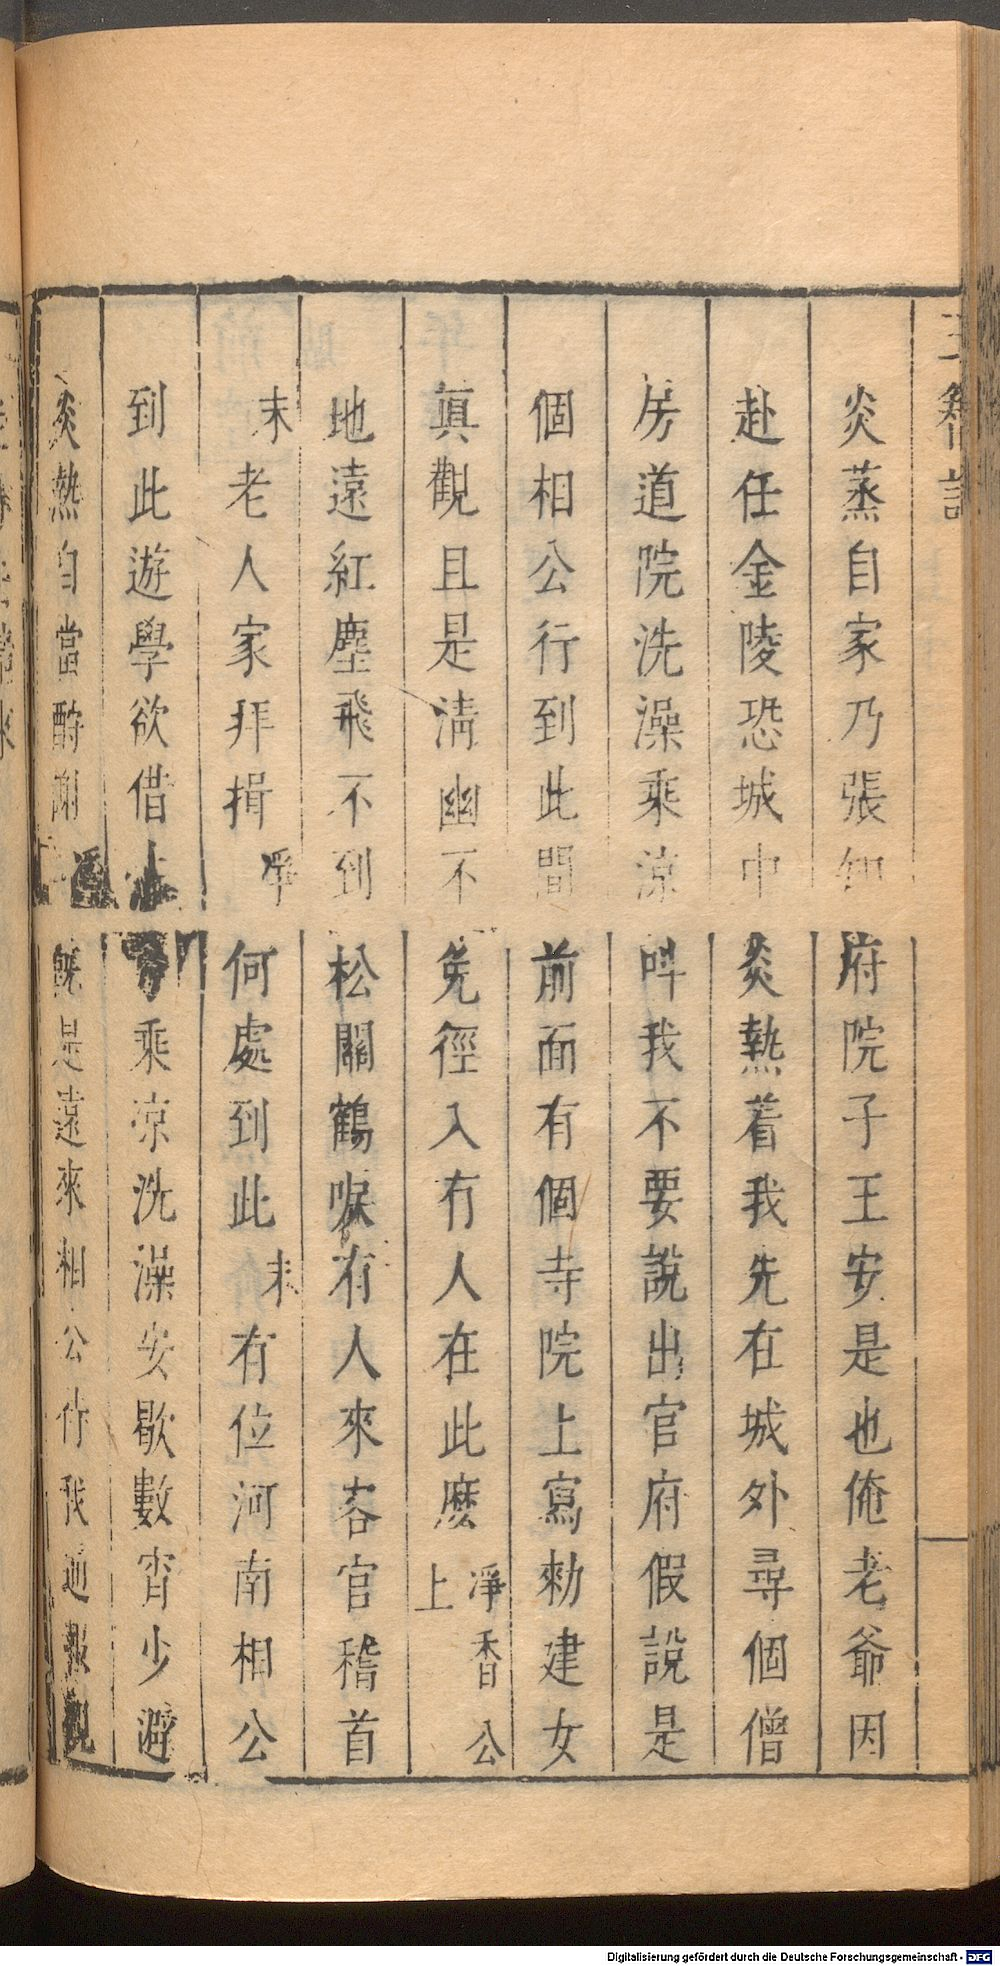 炎蒸自家乃張知府院子王安是也俺老爺因
赴任金陵恐城中炎熱着我先在城外尋個僧
房道院洗澡乘涼呌我不要說出官府假說是
個相公行到此間前面有個寺院上寫勑建女
眞觀且是清幽不免徑入冇人在此麽 淨香公上
地遠紅塵飛不到松關鶴唳有人來客官稽首
末老人家拜揖淨何處到此末有位河南相公
到此遊學欲借 乘涼洗澡安歇數宵少避
炎熱自當酧謝淨 旣是遠來相公待我通報觀
Digitalisierung gefördert durch die Deutsche Forschungsgemeinschaft - DFG